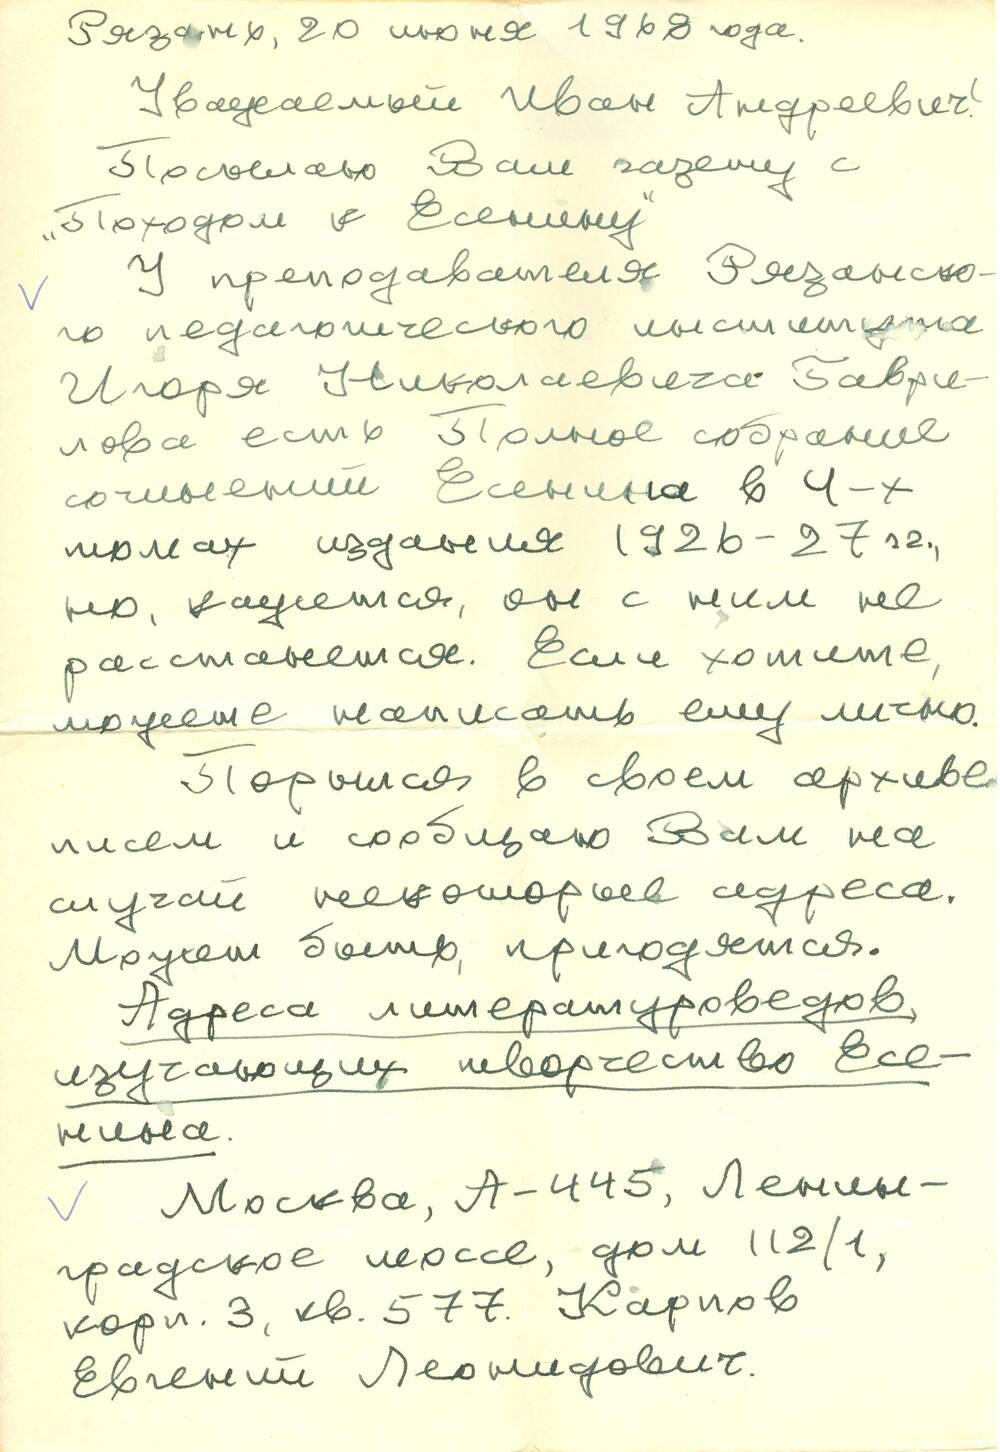 Рязань, 20 июня 1968 года.
Уважаемый Иван Андреевич!
Посылаю Вам газету с
„Походом к Есенину"
У преподавателя Рязанско-
го педагогического института
Игоря Николаевича Гаври-
лова есть Полное собрание
сочинений Есенина в 4-х
томах издания 1926-27 гг.,
но, кажется, он с ним не
расстанется. Если хотите,
можете написать ему лично.
Порылся в своем архиве
писем и сообщаю Вам на
случай некоторые адреса.
Может быть, пригодятся.
Адреса литературоведов,
изучающих творчество Есе-
нина.
Москва, А-445, Ленин-
градское шоссе, дом 112/1,
корп. 3, кв. 577. Карпов
Евгений Леонидович.